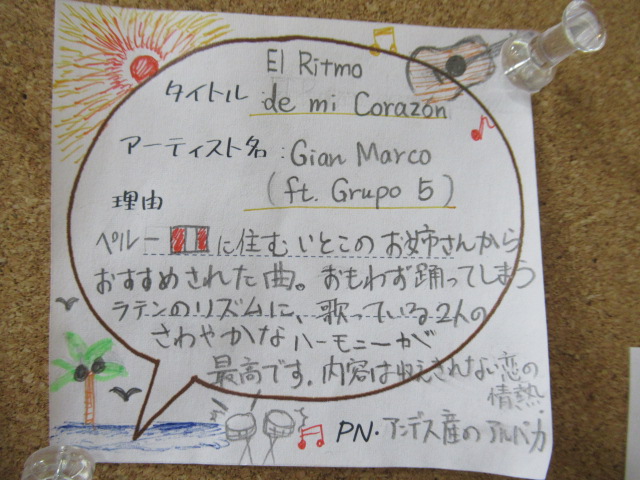 El Ritmo
タイトル de mi Corazón
アーティスト名:Gian Marco
(ft. Grupo 5)
理由
ペルーに住むいとこのお姉さんから
おすすめされた曲。おもわず踊ってしまう
ラテンのリズムに、歌っている2人の
さわやかなハーモニーが
最高です。内容は収えきれない恋の
情熱.
PN.アンデス産のアルパカ